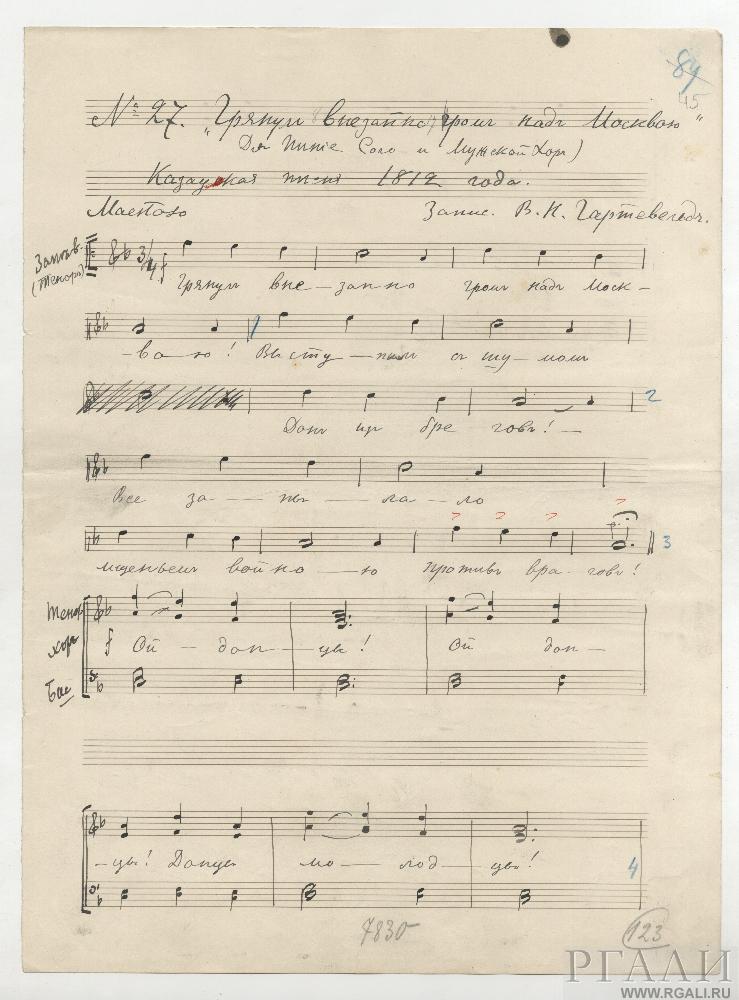 84
45
№ 27. „Грянулъ внезапно громъ надъ Москвою"
Для пѣнiе (Соло и Мужской Хоръ)
Казацкая пѣсня 1812 года.
Маестозо Запис. В. Н. Гартевельдъ.
Запѣв.
(Теноръ)
3/4 f Грянулъ вне-запно громъ надъ Моск-
1
-во-ю! Высту-пилъ съ шу-момъ
2
Донъ изъ бре говъ! -
Все за- пы- ла- ло
3
мщеньемъ войно-ю противъ вра-говъ!
Тенор
хоръ f Ой - дон- цы! Ой дон-
Бас
-цы! Донцы мо- лод- цы!
4
7830
123
РГАЛИ
WWW.RGALI.RU